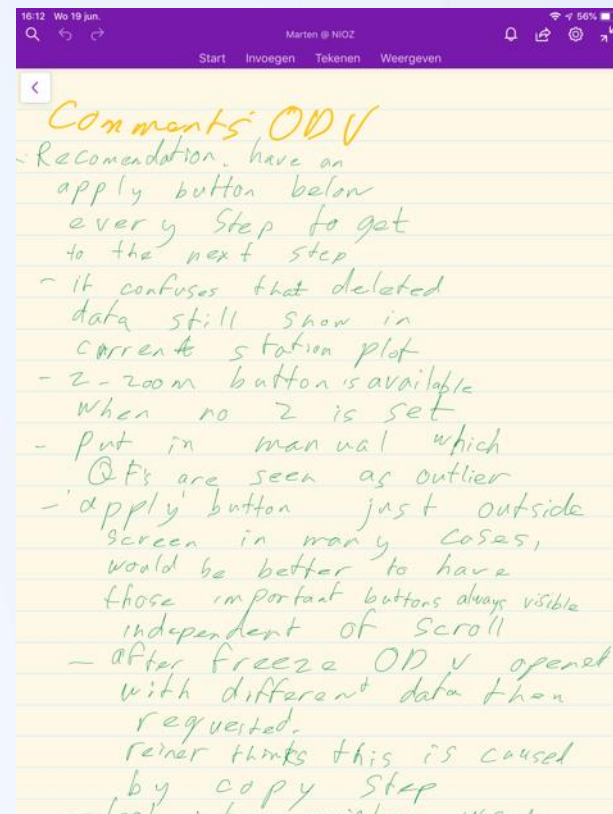 16:12 Wo 19 jun.
56%
Marten @ NIOZ
Start Invoegen Tekenen Weergeven
Comments ODV
- Recomendation. have an
apply button below
every Step to get
to the next step
- it confuses that deleted
data still show in
current station plot
- Z-zoom button is available
when no Z is set
- Put in manual which
QF's are seen as outlier
- 'apply' button just outside
screen in many cases,
would be better to have
those important buttons always visible
independent of scroll
- after freeze ODV opened
with different data then
requested.
reiner thinks this is caused
by copy step